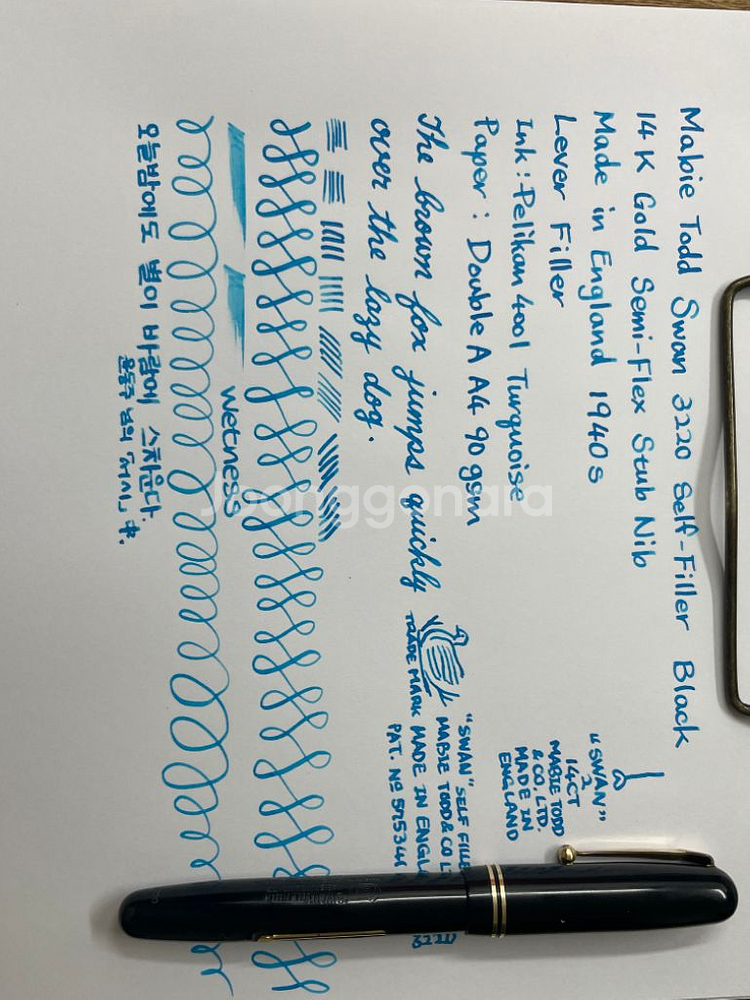 Mabie Todd Swan 3220 Self-Filler Black
14K Gold Semi-Flex Stub Nib
Made in England 1940s
Lever Filler
Ink : Pelikan 4001 Turquoise
Paper : Double A A4 90 gsm
The brown fox jumps quickly
over the lazy dog.
Wetness
오늘밤에도 별이 바람에 스치운다.
윤동주 님의 「서시」 中.
"SWAN"
2
14CT
MABIE TODD
& CO. LTD.
MADE IN
ENGLAND
"SWAN" SELF FILLE
MABIE TODD & CO LT
TRADE MARK MADE IN ENGL
PAT. Nº
Joonggonara